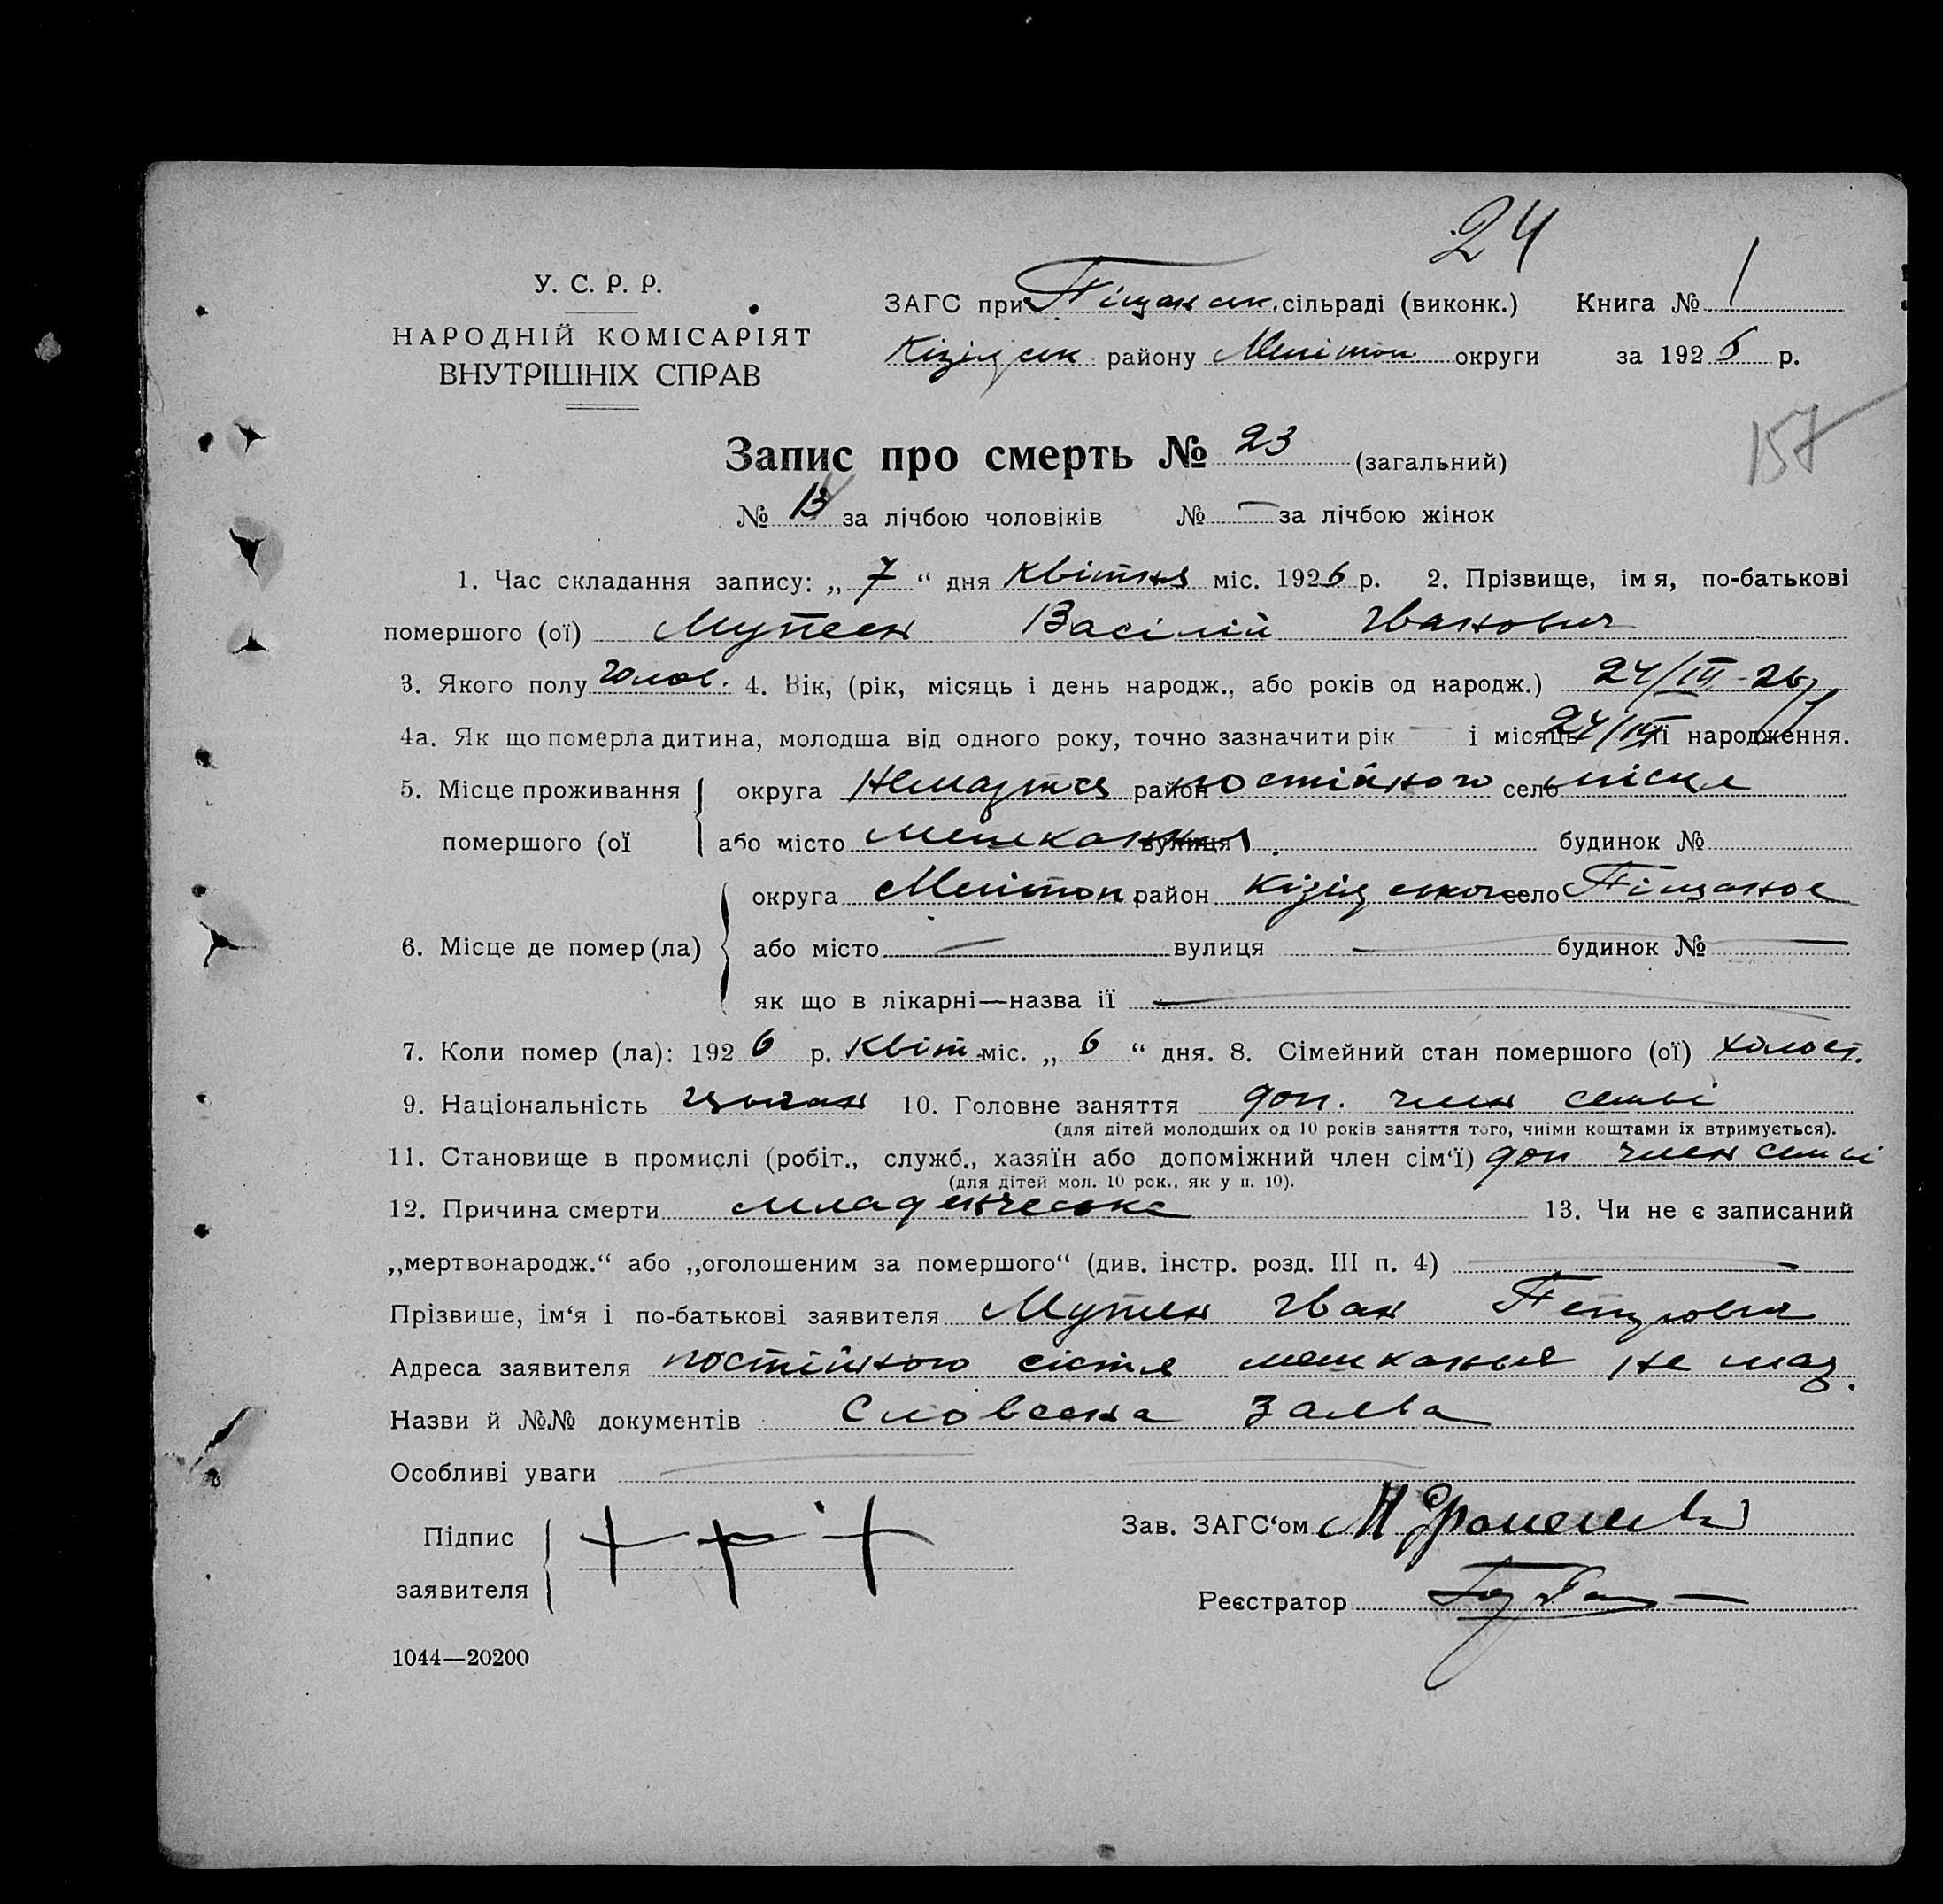 24
У. С. Р. Р.
НАРОДНІЙ КОМІСАРІЯТ
ВНУТРІШНІХ СПРАВ
ЗАГС при Піщанск. сільраді (виконк.) Книга № 1
району Мелітоп округи за 1926 р.
157
Запис про смерть № 23 (загальний)
№ 13 за лічбою чоловіків № — за лічбою жінок
1. Час складання запису: „ 7 “ дня Квітня міс. 1926 р. 2. Прізвище, імя, по-батькові
помершого (ої) Василій Іванович
3. Якого полу чолов. 4. Вік, (рік, місяць і день народж., або років од народж.) 24/III-26
4а. Як що померла дитина, молодша від одного року, точно зазначити рік — і місяць 24/III її народження.
5. Місце проживання округа Немаэтся район постійного село місця
помершого (ої або місто мешкання вулиця будинок №
округа Мелітоп район село Піщаное
6. Місце де помер (ла) або місто — вулиця — будинок № —
як що в лікарні—назва її —
7. Коли помер (ла): 1926 р. Квіт. міс. „ 6 “ дня. 8. Сімейний стан помершого (ої) холост.
9. Національність цыган 10. Головне заняття доп. член семьі
(для дітей молодших од 10 років заняття того, чиїми коштами їх втримується).
11. Становище в промислі (робіт., служб., хазяїн або допоміжний член сім‘ї) доп член семьі
(для дітей мол. 10 рок., як у п. 10).
12. Причина смерти младенческа 13. Чи не є записаний
„мертвонародж.“ або „оголошеним за помершого“ (див. інстр. розд. III п. 4) —
Прізвише, ім‘я і по-батькові заявителя Іван Петрович
Адреса заявителя постійного мешканья не маэ.
Назви й №№ документів Словесна заява
Особливі уваги
Підпис + + +
заявителя
Зав. ЗАГС‘ом
Реєстратор
1044—20200